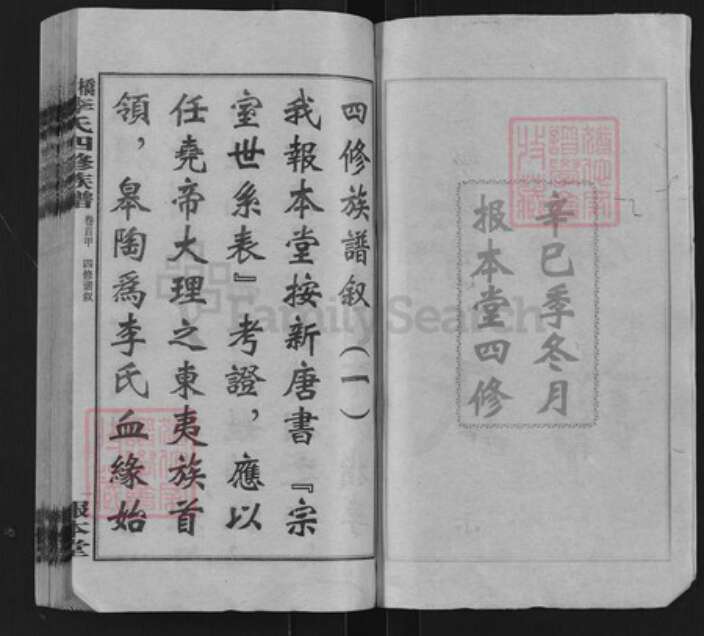 辛巳季冬月
报本堂四修
四修族譜叙（一）
我报本堂按新唐書『宗
室世系表』考證，應以
任堯帝大理之東夷族首
領，皋陶爲李氏血緣始
橋李氏四修族譜
卷首甲 四修譜叙
報本堂
FamilySearch